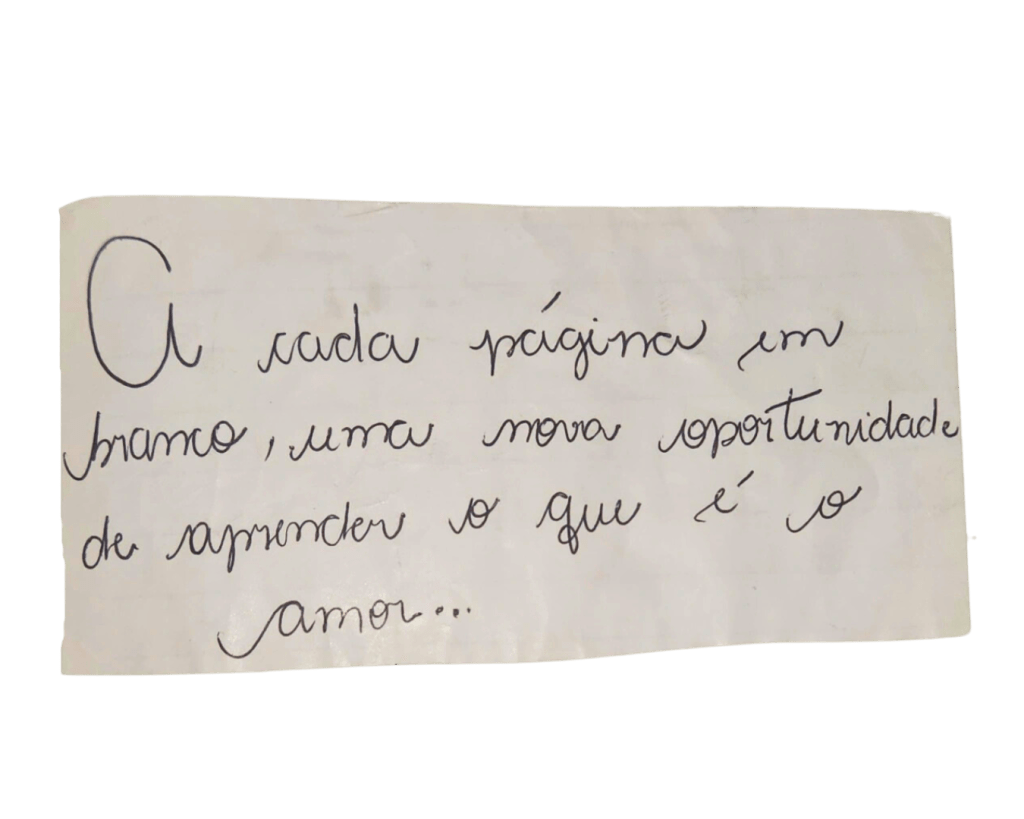 A cada página em
branco, uma nova oportunidade
de aprender o que é o
amor...